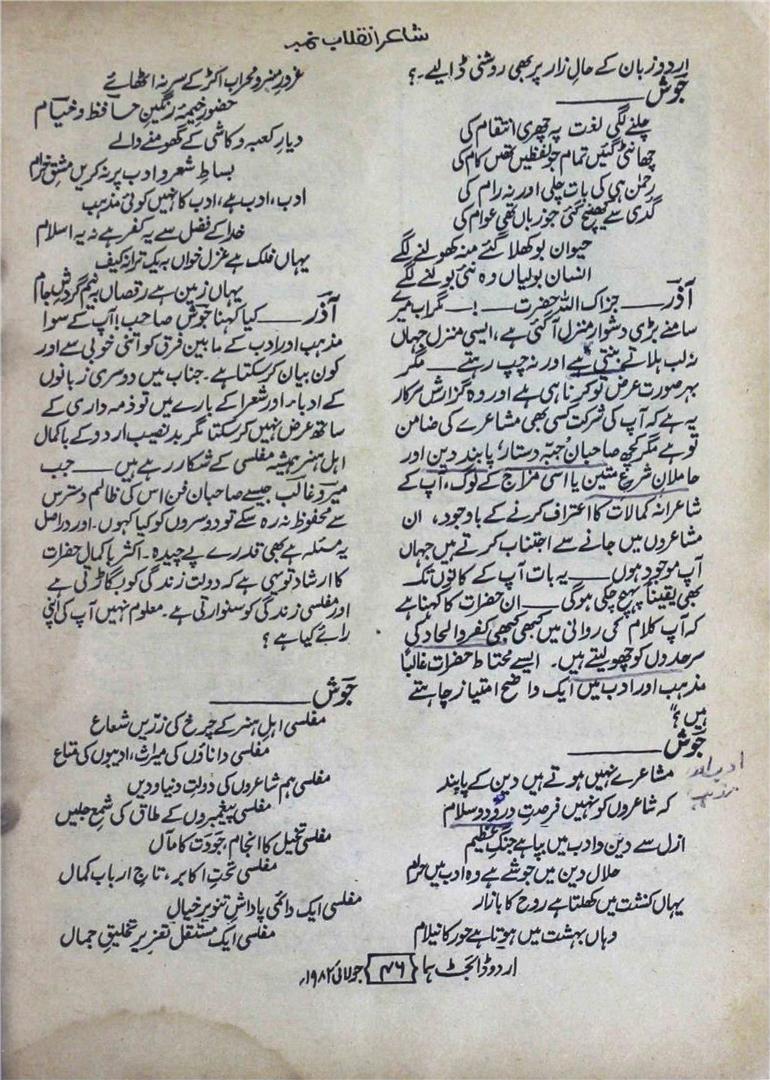 شاعر انقلاب نمبر
اردو زبان کے حالِ زار پر بھی روشنی ڈالیے۔؟
جوش ————
چلنے لگی لغت پہ چھری انتقام کی
چھانٹی گئیں تمام جو لفظیں تھیں کام کی
رحمٰن ہی کی بات چلی اور نہ رام کی
گدّی سے کھینچ گئی جو زباں تھی عوام کی
حیوان بوکھلا گئے منہ کھولنے لگے
انسان بولیاں وہ نئی بولنے لگے
آذر — جزاک اللہ حضرت — !— مگر اب میرے
سامنے بڑی دشوار منزل آگئی ہے، ایسی منزل جہاں
نہ لب ہلاتے بنتی ہے اور نہ چپ رہتے — مگر
بہر صورت عرض تو کرنا ہی ہے اور وہ گزارش سرکار
یہ ہے کہ آپ کی شرکت کسی بھی مشاعرے کی ضامن
تو ہے مگر کچھ صاحبانِ جبّہ دستار، پابندِ دین اور
حاملانِ شرعِ متین یا اسی مزاج کے لوگ، آپ کے
شاعرانہ کمالات کا اعتراف کرنے کے باوجود، ان
مشاعروں میں جانے سے اجتناب کرتے ہیں جہاں
آپ موجود ہوں — یہ بات آپ کے کانوں تک
بھی یقیناً پہنچ چکی ہوگی — ان حضرات کا کہنا ہے
کہ آپ کلام کی روانی میں کبھی کبھی کفر و الحاد کی
سرحدوں کو چھو لیتے ہیں۔ ایسے محتاط حضرات غالباً
مذہب اور ادب میں ایک واضح امتیاز چاہتے
ہیں؟
جوش ————
ادب اور
مذہب
مشاعرے نہیں ہوتے ہیں دین کے پابند
کہ شاعروں کو نہیں فرصتِ درود و سلام
ازل سے دین و ادب میں بپا ہے جنگِ عظیم
حلال دین میں جو شے ہے وہ ادب میں حرام
یہاں کنشت میں کھلتا ہے روح کا بازار
وہاں بہشت میں ہوتا ہے حور کا نیلام
غرورِ منبر و محراب اکڑ کے سر نہ اٹھائے
حضورِ خیمۂ رنگینِ حافظ و خیام
دیارِ کعبہ و کاشی کے گھومنے والے
بساطِ شعر و ادب پر نہ کریں مشقِ خرام
ادب، ادب ہے، ادب کا نہیں کوئی مذہب
خدا کے فضل سے یہ کفر ہے نہ یہ اسلام
یہاں فلک ہے غزل خواں بہ یک ترانۂ کیف
یہاں زمین ہے رقصاں بہ نیم گردشِ جام
آذر — کیا کہنا جوش صاحب! آپ کے سوا
مذہب اور ادب کے مابین فرق کو اتنی خوبی سے اور
کون بیان کرسکتا ہے۔ جناب میں دوسری زبانوں
کے ادباء اور شعرا کے بارے میں تو ذمہ داری کے
ساتھ عرض نہیں کرسکتا مگر بد نصیب اردو کے باکمال
اہلِ ہنر ہمیشہ مفلسی کے شکار رہے ہیں — جب
میر و غالب جیسے صاحبان فن اس کی ظالم دسترس
سے محفوظ نہ رہ سکے تو دوسروں کو کیا کہوں۔ اور دراصل
یہ مسئلہ ہے بھی قدرے پے چیدہ۔ اکثر باکمال حضرات
کا ارشاد تو یہی ہے کہ دولت زندگی کو بگاڑتی ہے
اور مفلسی زندگی کو سنوارتی ہے۔ معلوم نہیں آپ کی اپنی
رائے کیا ہے؟
جوش ————
مفلسی اہلِ ہنر کے چرخ کی زرّیں شعاع
مفلسی داناؤں کی میراث، ادیبوں کی متاع
مفلسی ہم شاعروں کی دولتِ دنیا و دیں
مفلسی پیغمبروں کے طاق کی شمعِ جلیں
مفلسی تخیل کا انجام جودت کا مآل
مفلسی تختِ اکابر، تاجِ اربابِ کمال
مفلسی ایک دائمی پاداشِ تنویرِ خیال
مفلسی ایک مستقل تعزیرِ تخلیقِ جمال
اردو ڈائجسٹ ہما ۴۶ جولائی ۱۹۸۲ء